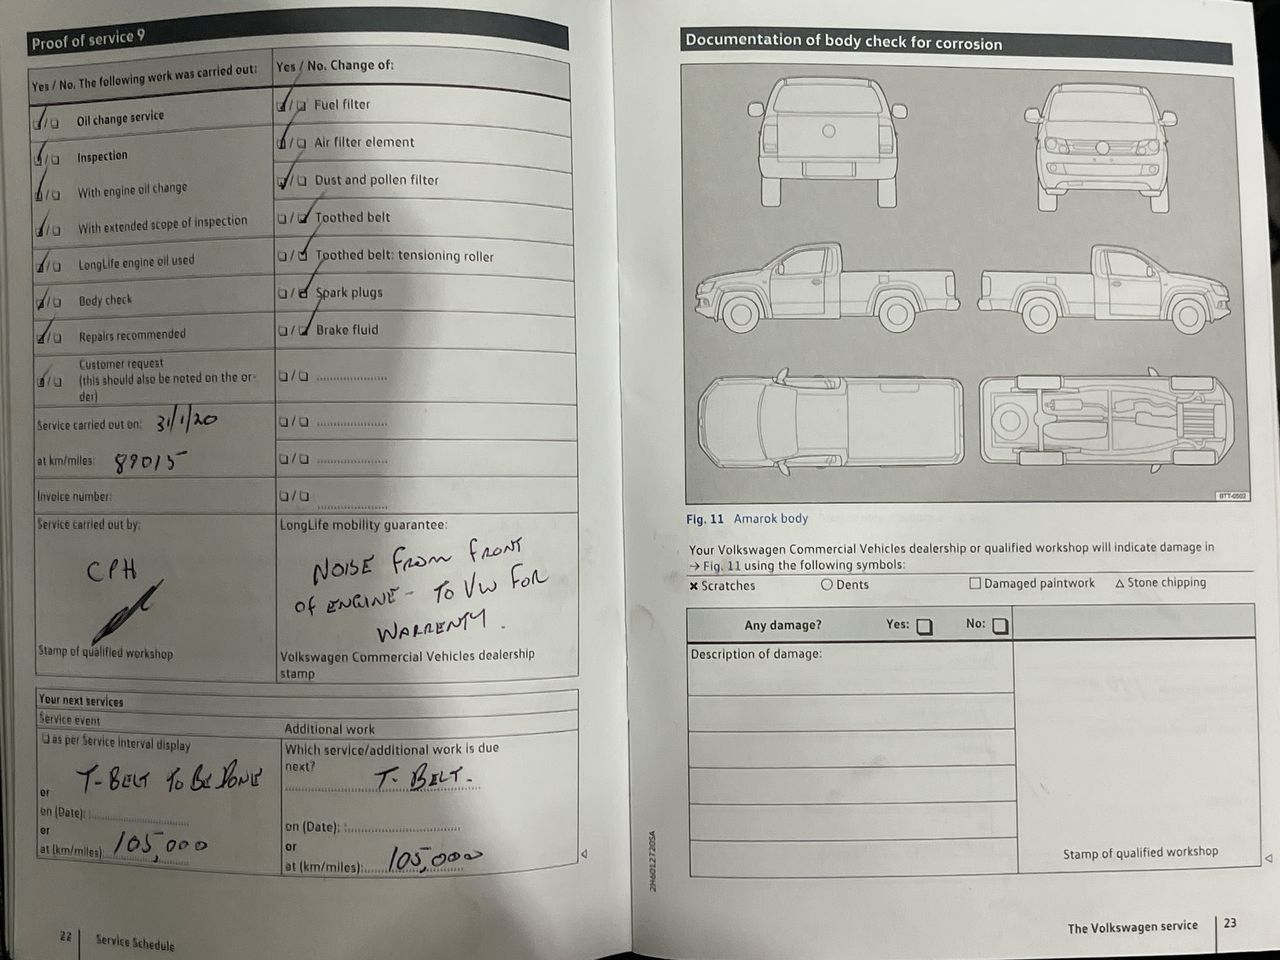 Proof of service 9
Yes / No. The following work was carried out:
Oil change service
Inspection
With engine oil change
With extended scope of inspection
LongLife engine oil used
Body check
Repairs recommended
Customer request
(this should also be noted on the or-
der)
Service carried out on: 31/1/20
at km/miles: 89015
Invoice number:
Service carried out by:
CPH
Stamp of qualified workshop
Yes / No. Change of:
Fuel filter
Air filter element
Dust and pollen filter
Toothed belt
Toothed belt: tensioning roller
Spark plugs
Brake fluid
LongLife mobility guarantee:
NOISE FROM FRONT
OF ENGINE - TO VW FOR
WARRENTY.
Volkswagen Commercial Vehicles dealership
stamp
Your next services
Service event
as per Service interval display
T-BELT TO BE DONE
or
on (Date):
or
at (km/miles): 105,000
Additional work
Which service/additional work is due
next? T. BELT.
on (Date):
or
at (km/miles): 105,000
22 Service Schedule
Documentation of body check for corrosion
BTT-0502
Fig. 11 Amarok body
Your Volkswagen Commercial Vehicles dealership or qualified workshop will indicate damage in
→ Fig. 11 using the following symbols:
× Scratches ○ Dents □ Damaged paintwork △ Stone chipping
Any damage? Yes: No:
Description of damage:
Stamp of qualified workshop
2H6012720SA
The Volkswagen service 23